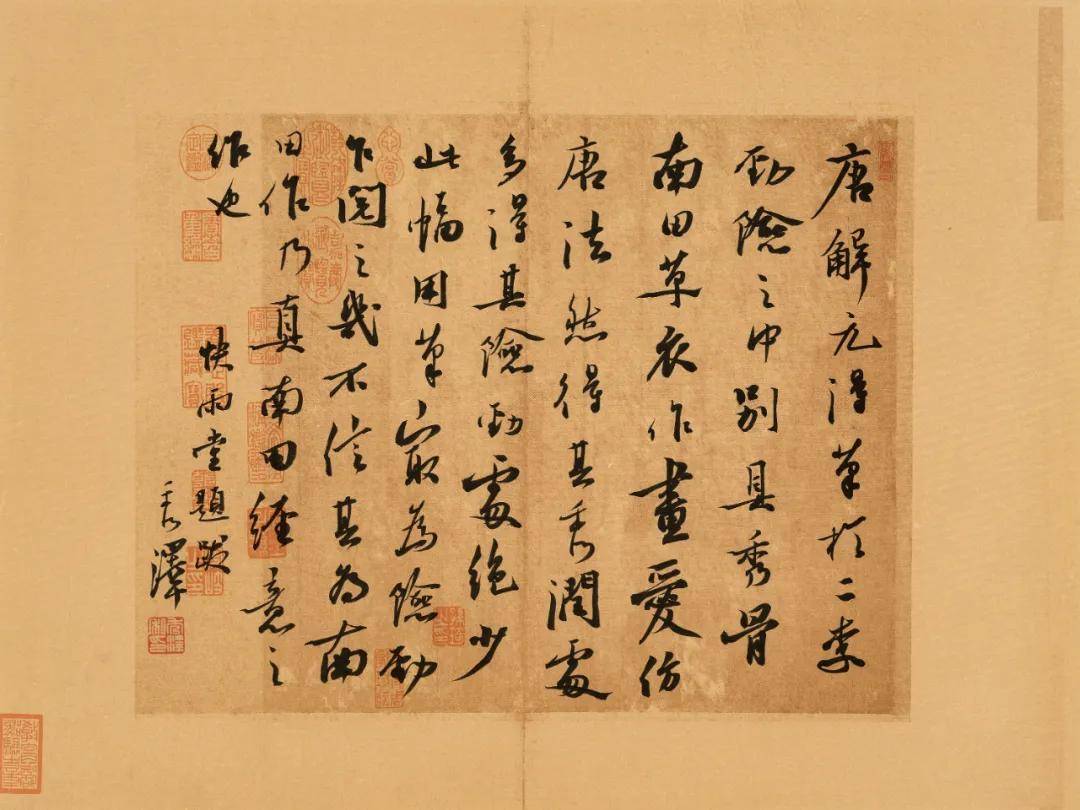 唐解元得筆於二李
勁險之中別具秀骨
南田草衣作畫愛仿
唐法然得其秀潤處
多得其險勁處絶少
此幅用筆寂為險勁
乍閱之幾不信其為南
田作乃真南田經意之
作也
快雨堂題跋
秀澤